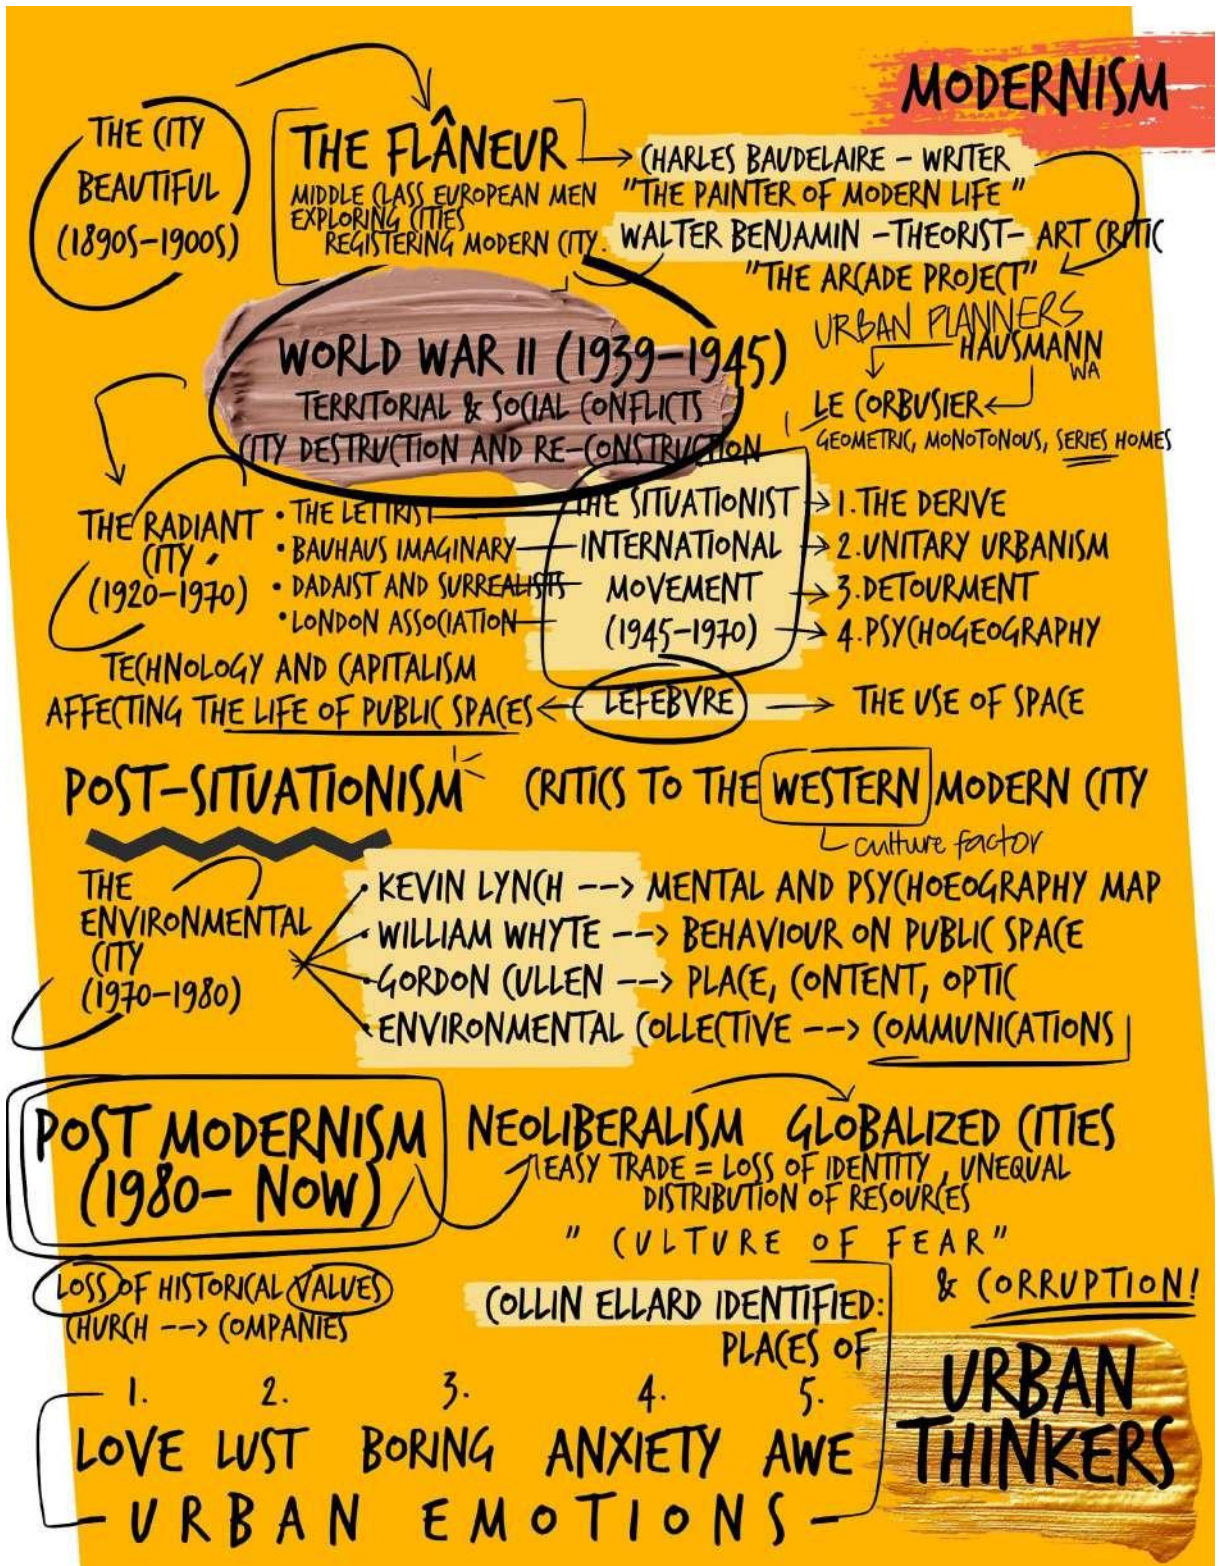 MODERNISM
THE CITY
BEAUTIFUL
(1890S-1900S)
THE FLÂNEUR
MIDDLE CLASS EUROPEAN MEN
EXPLORING CITIES
REGISTERING MODERN CITY.
CHARLES BAUDELAIRE - WRITER
"THE PAINTER OF MODERN LIFE"
WALTER BENJAMIN -THEORIST- ART CRITIC
"THE ARCADE PROJECT"
URBAN PLANNERS
HAUSMANN
WA
LE CORBUSIER
GEOMETRIC, MONOTONOUS, SERIES HOMES
WORLD WAR II (1939-1945)
TERRITORIAL & SOCIAL CONFLICTS
CITY DESTRUCTION AND RE-CONSTRUCTION
THE RADIANT
CITY
(1920-1970)
• THE LETTRIST
• BAUHAUS IMAGINARY
• DADAIST AND SURREALISTS
• LONDON ASSOCIATION
THE SITUATIONIST
INTERNATIONAL
MOVEMENT
(1945-1970)
→ 1. THE DERIVE
→ 2. UNITARY URBANISM
→ 3. DETOURMENT
→ 4. PSYCHOGEOGRAPHY
TECHNOLOGY AND CAPITALISM
AFFECTING THE LIFE OF PUBLIC SPACES ← LEFEBVRE → THE USE OF SPACE
POST-SITUATIONISM
CRITICS TO THE WESTERN MODERN CITY
culture factor
THE
ENVIRONMENTAL
CITY
(1970-1980)
• KEVIN LYNCH --> MENTAL AND PSYCHOEOGRAPHY MAP
• WILLIAM WHYTE --> BEHAVIOUR ON PUBLIC SPACE
• GORDON CULLEN --> PLACE, CONTENT, OPTIC
• ENVIRONMENTAL COLLECTIVE --> COMMUNICATIONS
POST MODERNISM
(1980- NOW)
NEOLIBERALISM GLOBALIZED CITIES
EASY TRADE = LOSS OF IDENTITY, UNEQUAL
DISTRIBUTION OF RESOURCES
"CULTURE OF FEAR"
& CORRUPTION!
LOSS OF HISTORICAL VALUES
CHURCH --> COMPANIES
COLLIN ELLARD IDENTIFIED:
PLACES OF
1. 2. 3. 4. 5.
LOVE LUST BORING ANXIETY AWE
- URBAN EMOTIONS -
URBAN
THINKERS